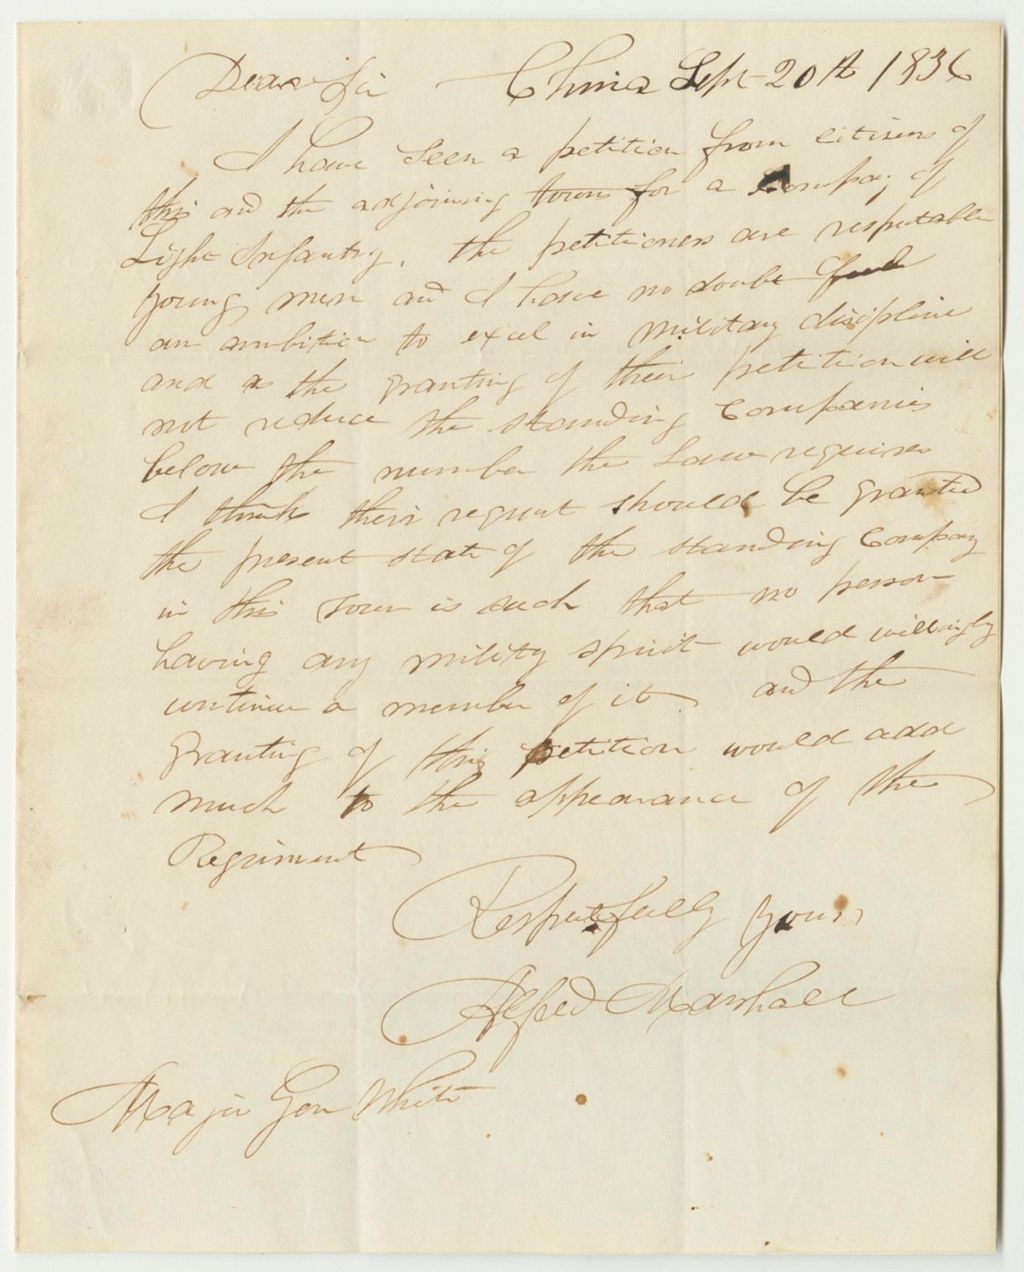 Dear Sir China Sept 20th 1836
I have seen a petition from citizens of
this and the adjoining towns for a Company of
Light Infantry. the petitioners are respectable
young men and I have no doubt feel
an ambition to excel in military discipline
and as the granting of their petition will
not reduce the standing Companies
below the number the Law requires
I think their request should be granted
the present state of the standing Company
in this Town is such that no person
having any military spirit would willingly
continue a member of it and the
granting of this petition would add
much to the appearance of the
Regiment
Respectfully yours
Alfred Marshall
Major Gen White